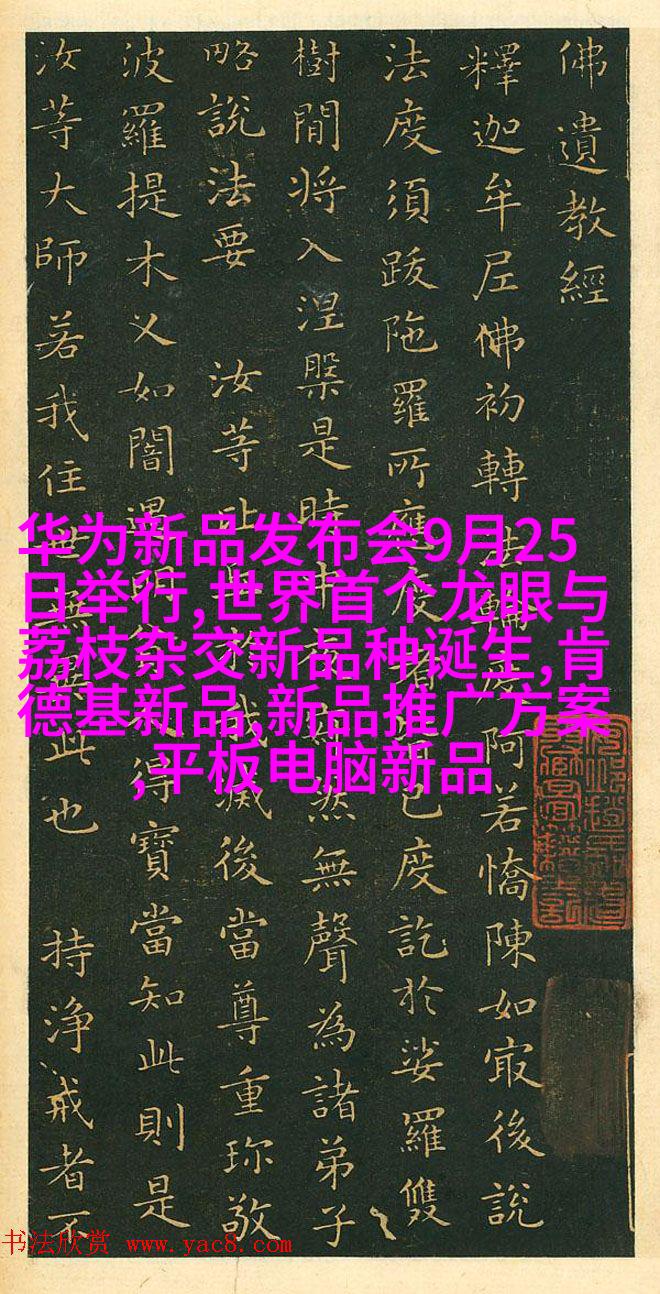 佛遺教經
釋迦牟尼佛初轉法輪度阿若憍陳如㝡後說
法度須跋陁羅所應度者皆已度訖於娑羅雙
樹間将入涅槃是時中夜然無聲為諸弟子
略說法要 汝等比丘於我滅後當尊重珎敬
波羅提木义如闇遇明貧人得寶當知此則是
汝等大師若我住世無此也 持淨戒者不
华为新品发布会9月25
日举行,世界首个龙眼与
荔枝杂交新品种诞生,肯
德基新品,新品推广方案
,平板电脑新品
书法欣赏 www.yac8.com